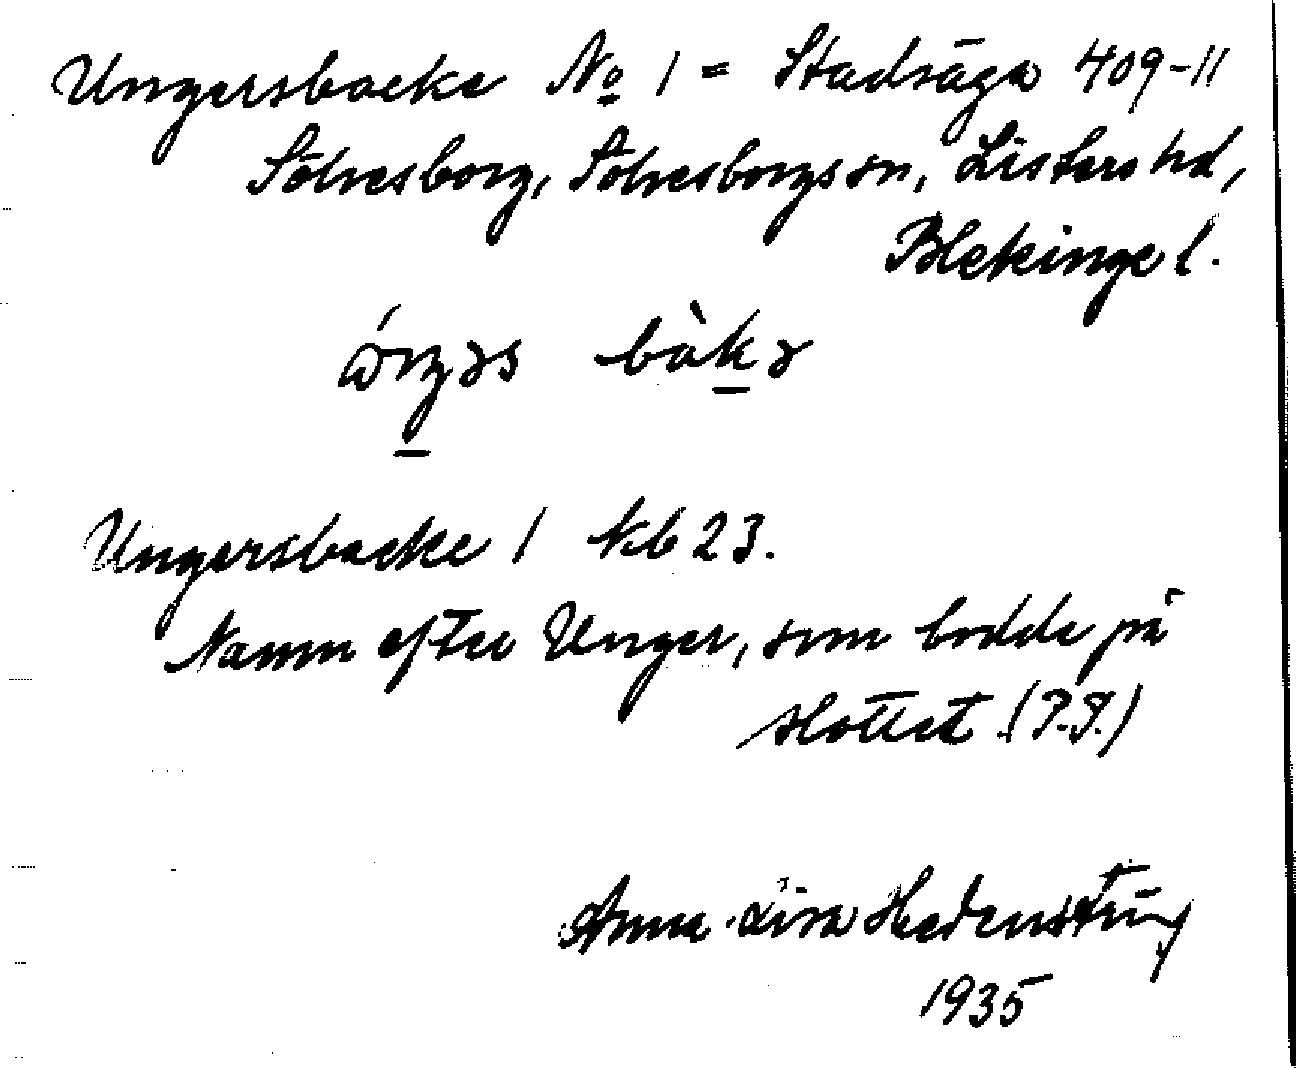 Ungersbacke No 1 = Stadsäga 409-11
Sölvesborg, Sölvesborgs sn, Listers hd,
Blekinge l.
bàkə
Ungersbacke 1 Kb 23.
Namn efter Unger, som bodde på
slottet. (P.J.)
Anna-Lisa Hedenstrüg
1935